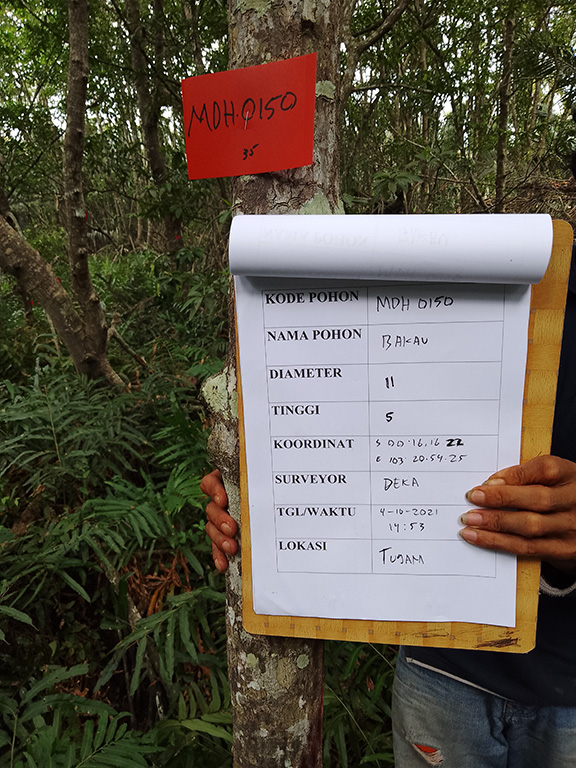 MDH.0150
35
KODE POHON MDH 0150
NAMA POHON BAKAU
DIAMETER 11
TINGGI 5
KOORDINAT S 00.16.16 22
E 103.20.54.25
SURVEYOR DEKA
TGL/WAKTU 4-10-2021
14:53
LOKASI TUGAM